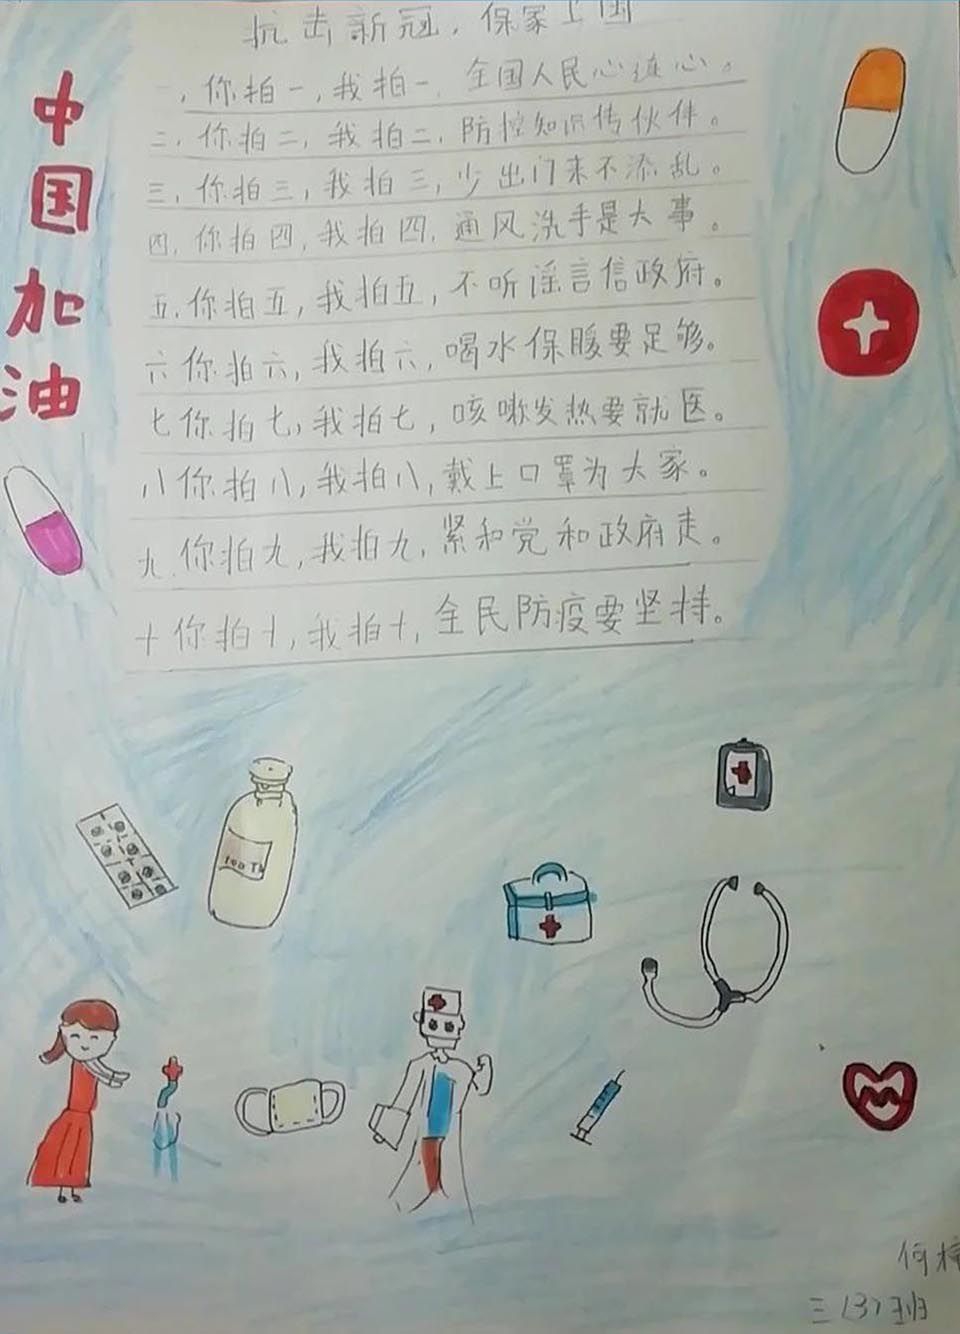 抗击新冠，保家卫国
一，你拍一，我拍一，全国人民心连心。
二，你拍二，我拍二，防控知识传伙伴。
三，你拍三，我拍三，少出门来不添乱。
四，你拍四，我拍四，通风洗手是大事。
五，你拍五，我拍五，不听谣言信政府。
六你拍六，我拍六，喝水保暖要足够。
七你拍七，我拍七，咳嗽发热要就医。
八你拍八，我拍八，戴上口罩为大家。
九，你拍九，我拍九，紧和党和政府走。
十你拍十，我拍十，全民防疫要坚持。
中国加油
何
三（3）班